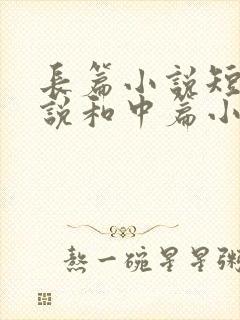 長篇小说短
说和中篇小
熬一碗星星粥